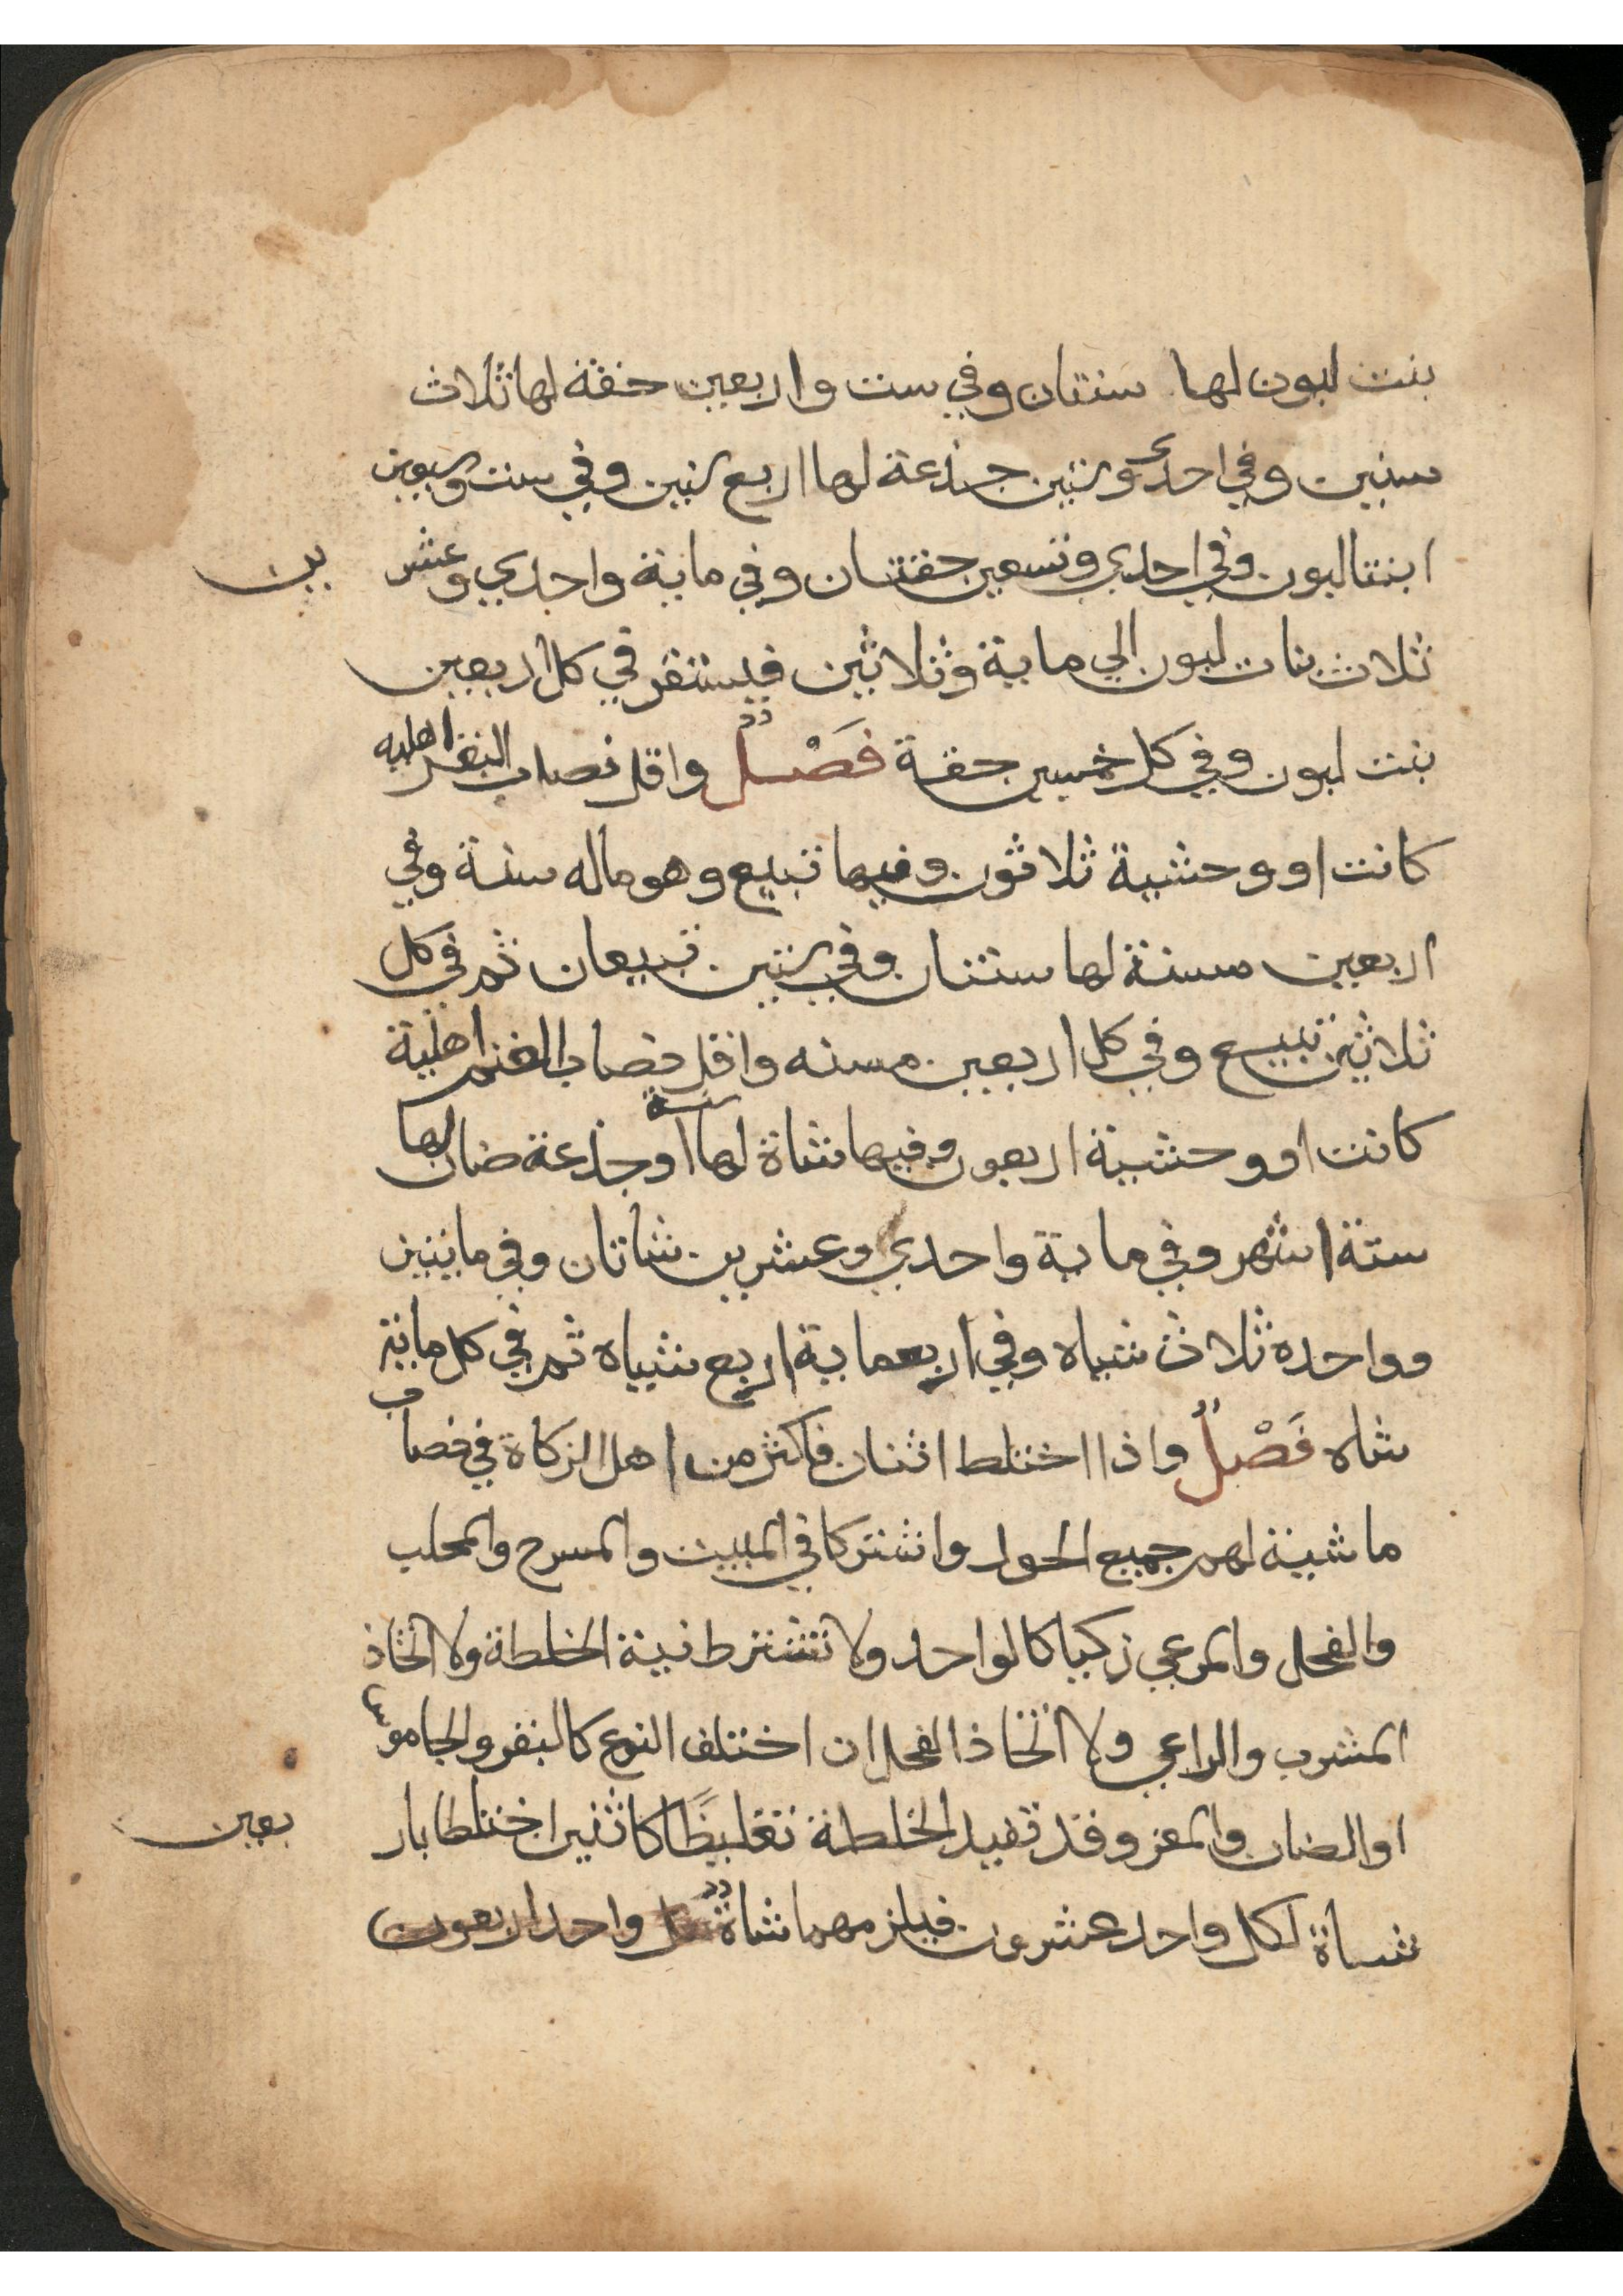 بنت لبون لها سنتان وفي ست واربعين حقة لها ثلاث
سنين وفي احدى وستين جذعة لها اربع سنين وفي ست وسبعين
ابنتا لبون وفي احدي وتسعين حقتان وفي ماية واحدي وعشر
ين
ثلاث بنات لبون الي ماية وثلاثين فيستقر في كل اربعين
بنت لبون وفي كل خمسين حقة فَصْل واقل نصاب البقر اهليه
كانت او وحشية ثلاثون وفيها تبيع وهو ماله سنة وفي
اربعين مسنة لها سنتان وفي ستين تبيعان ثم في كل
ثلاثين تبيع وفي كل اربعين مسنه واقل نصاب الغنم اهلية
كانت او وحشية اربعون وفيها شاة لها سنة اوجذعة ضان لها
ستة اشهر وفي ماية واحدي وعشرين شاتان وفي مايتين
وواحده ثلاث شياه وفي اربعماية اربع شياه ثم في كل ماية
شاه فَصْل واذا اختلط اثنان فاكثر من اهل الزكاة في نصاب
ماشية لهم جميع الحول واشتركا في المبيت والمسرح والمحلب
والفحل والمرعي زكيا كالواحد ولا تشترط نية الخلطة ولا اتحاد
المشرب والراعي ولا اتحاد الفحل ان اختلف النوع كالبقر والجاموس
او الضان والمعز وقد تفيد الخلطة تغليظًا كاثنين اختلطا بار
بعين
شاة لكل واحد عشرون فيلزمهما شاة واحد اربعون